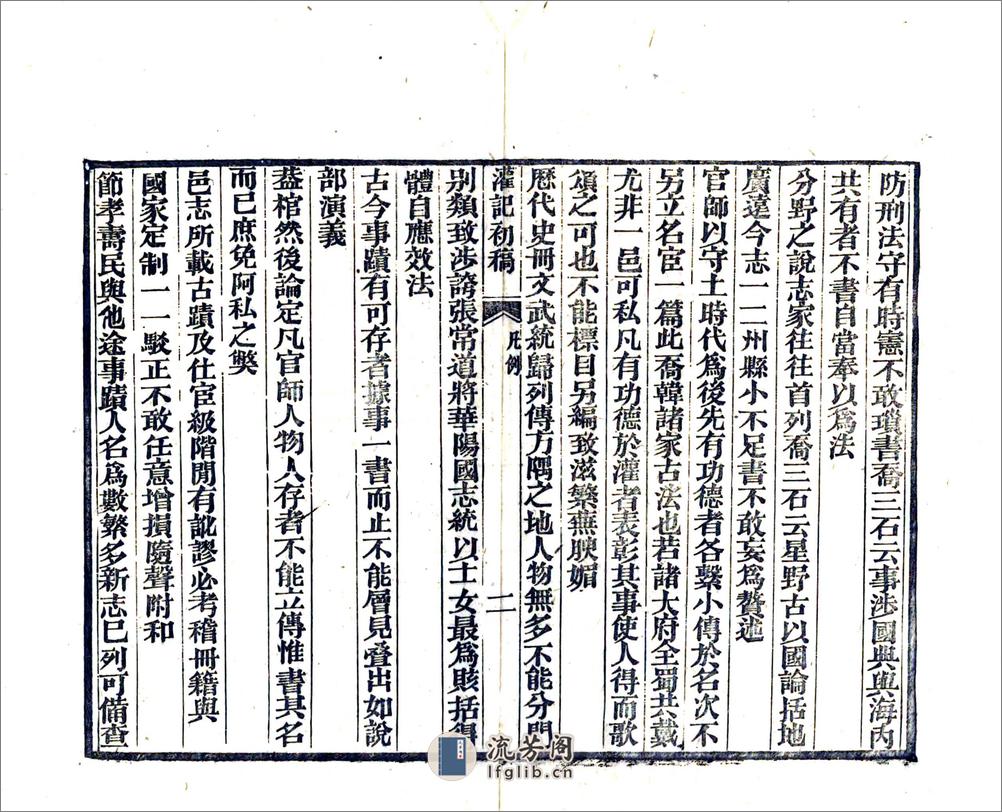 防刑法守有時憲不敢瑣書喬三石云事涉國典與海內
共有者不書自當奉以爲法
分野之說志家往往首列喬三石云星野古以國論括地
廣遠今志一二州縣小不足書不敢妄爲贅述
官師以守土時代爲後先有功德者各繫小傳於名次不
另立名宦一篇此喬韓諸家古法也若諸大府全蜀共戴
尤非一邑可私凡有功德於灌者表彰其事使人得而歌
頌之可也不能標目另編致滋繁蕪腴媚
歷代史冊文武統歸列傳方隅之地人物無多不能分門
灌記初稿
凡例
二
別類致涉誇張常道將華陽國志統以士女最爲賅括得
體自應效法
古今事蹟有可存者據事一書而止不能層見疊出如說
部演義
葢棺然後論定凡官師人物人存者不能立傳惟書其名
而已庶免阿私之獘
邑志所載古蹟及仕宦級階閒有訛謬必考稽冊籍與
國家定制一一駁正不敢任意增損隨聲附和
節孝壽民與他途事蹟人名爲數繁多新志已列可備查
流芳阁
lfglib.cn